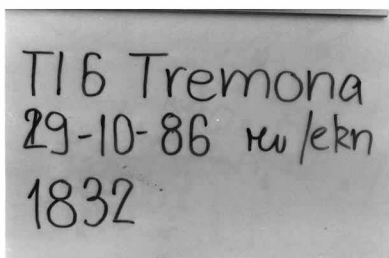 TI6 Tremona
29-10-86 /ekn
1832